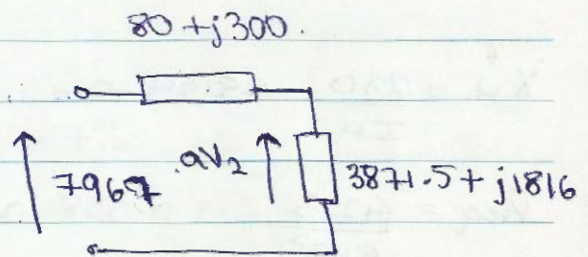 80 + j300.
7967
aV₂
3871.5 + j1816